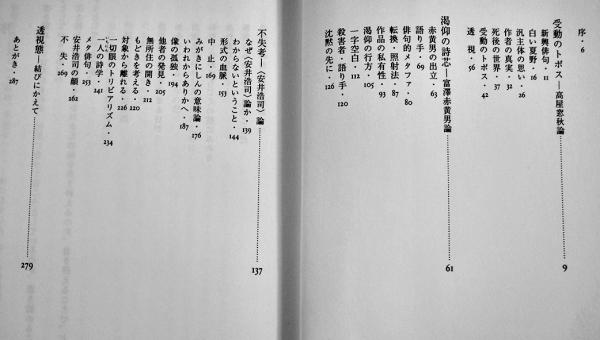 序・6
受動のトポス―高屋窓秋論 9
新興俳句・11
白い夏野・16
汎主体の思い・26
作者の真実・32
死後の世界・37
受動のトポス・42
透視・56
渇仰の詩芯―富澤赤黄男論 61
赤黄男の出立・63
語り手・69
俳句的メタ・ファ・80
転換・照射法・87
作品の私有性・93
渇仰の行方・105
一字空白・112
殺害者・語り手・120
沈黙の先に・126
不失考―〈安井浩司〉論 137
なぜ〈安井浩司〉論か・139
わからないということ・144
形式の血脈・153
中止・169
みがきにしんの意味論・176
いわれからありかへ・187
像の孤独・194
他者の発見・205
無所住の開き・212
もどきを考える・220
対象から離れる・226
一切眼のトリビアリズム・234
一人の俳学・241
メタ俳句・253
安井浩司の顔・262
不失・269
透視態―結びにかえて 279
あとがき・287